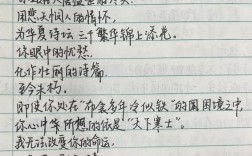 用悲天悯人的情怀,
为华夏诗坛三千繁华锦上添花。
你眼中的忧愁,
化作壮丽的诗篇,
至今未朽。
即使你处在“布衾多年冷似铁”的困困境之中,
你心中牵所想的依是“天下寒士”。
我无法改变你的命运,